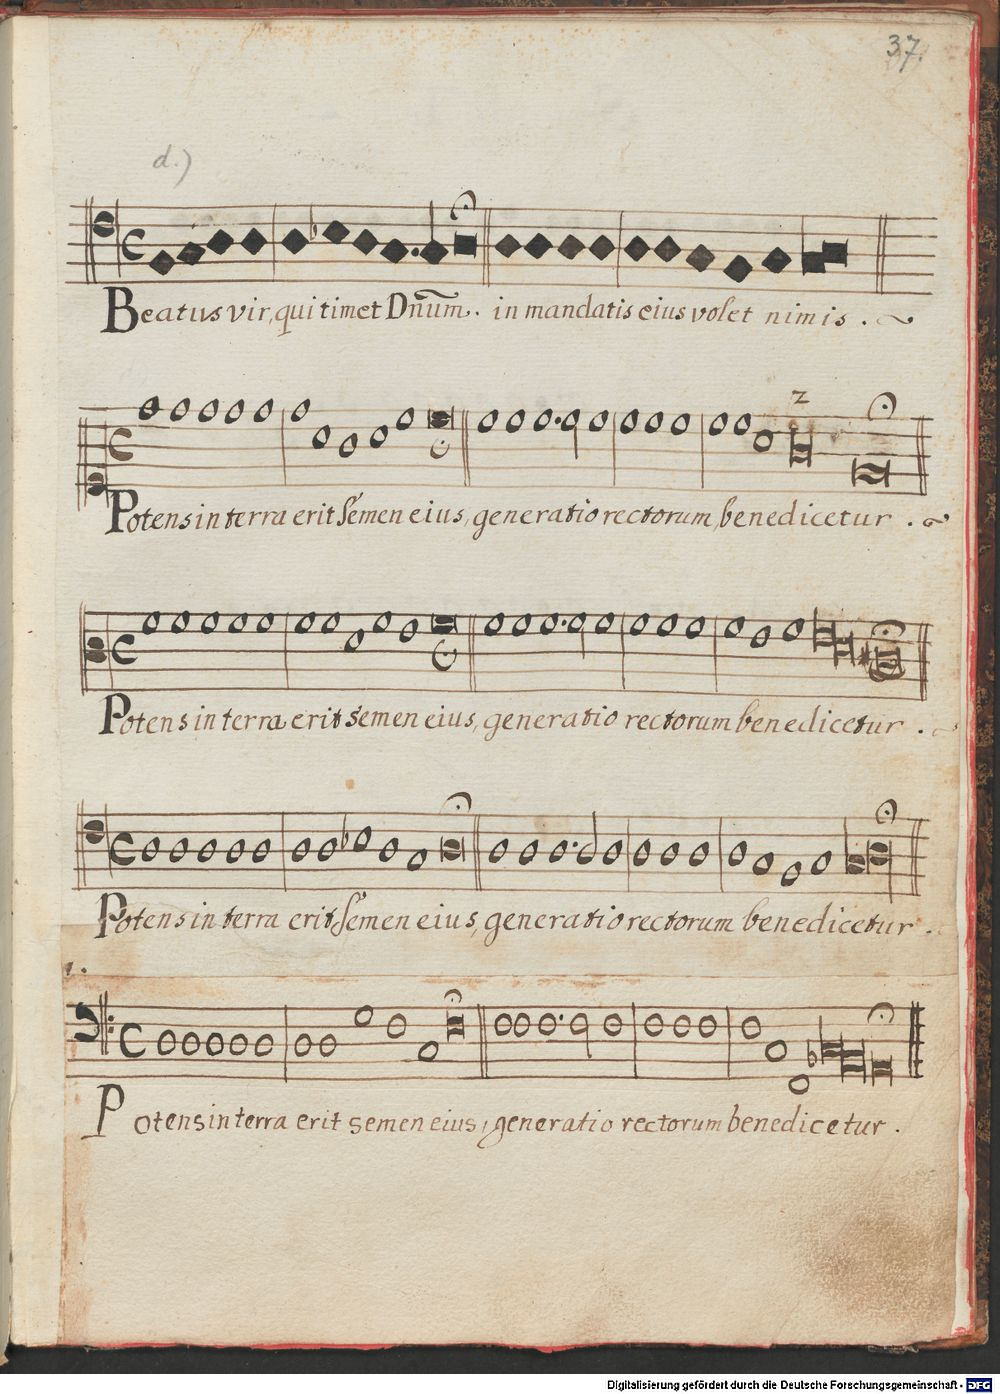 37.
d.)
Beatus vir, qui timet Dn̄um. in mandatis eius volet nimis.
z
Potens in terra erit semen eius, generatio rectorum, benedicetur.
Potens in terra erit semen eius, generatio rectorum benedicetur.
Potens in terra erit semen eius, generatio rectorum benedicetur.
Potens in terra erit semen eius, generatio rectorum benedicetur.
Digitalisierung gefördert durch die Deutsche Forschungsgemeinschaft - DFG